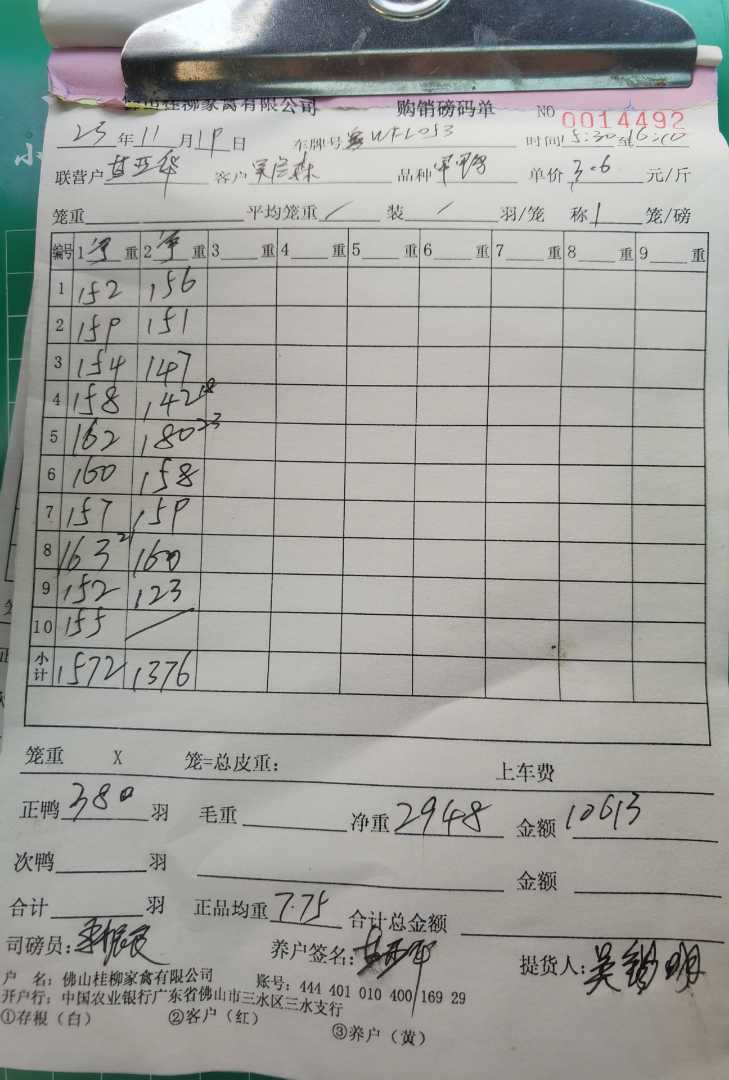 佛山桂柳家禽有限公司 购销磅码单 NO 0014492
23年11月19日 车牌号 时间15:30至16:00
联营户 客户 品种 单价3.6元/斤
笼重 平均笼重/装/羽/笼 称1笼/磅
编号 1净重 2净重 3重 4重 5重 6重 7重 8重 9重
1 152 156
2 159 151
3 154 147
4 158 142 18
5 162 180 23
6 160 158
7 157 159
8 163 21 160
9 152 123
10 155 /
小计 1572 1376
笼重 X 笼=总皮重: 上车费
正鸭380羽 毛重 净重2948 金额10613
次鸭 羽 金额
合计 羽 正品均重7.75 合计总金额
司磅员: 养户签名: 提货人:吴锦明
户 名:佛山桂柳家禽有限公司 账号:444 401 010 400 169 29
开户行:中国农业银行广东省佛山市三水区三水支行
①存根(白) ②客户(红) ③养户(黄)